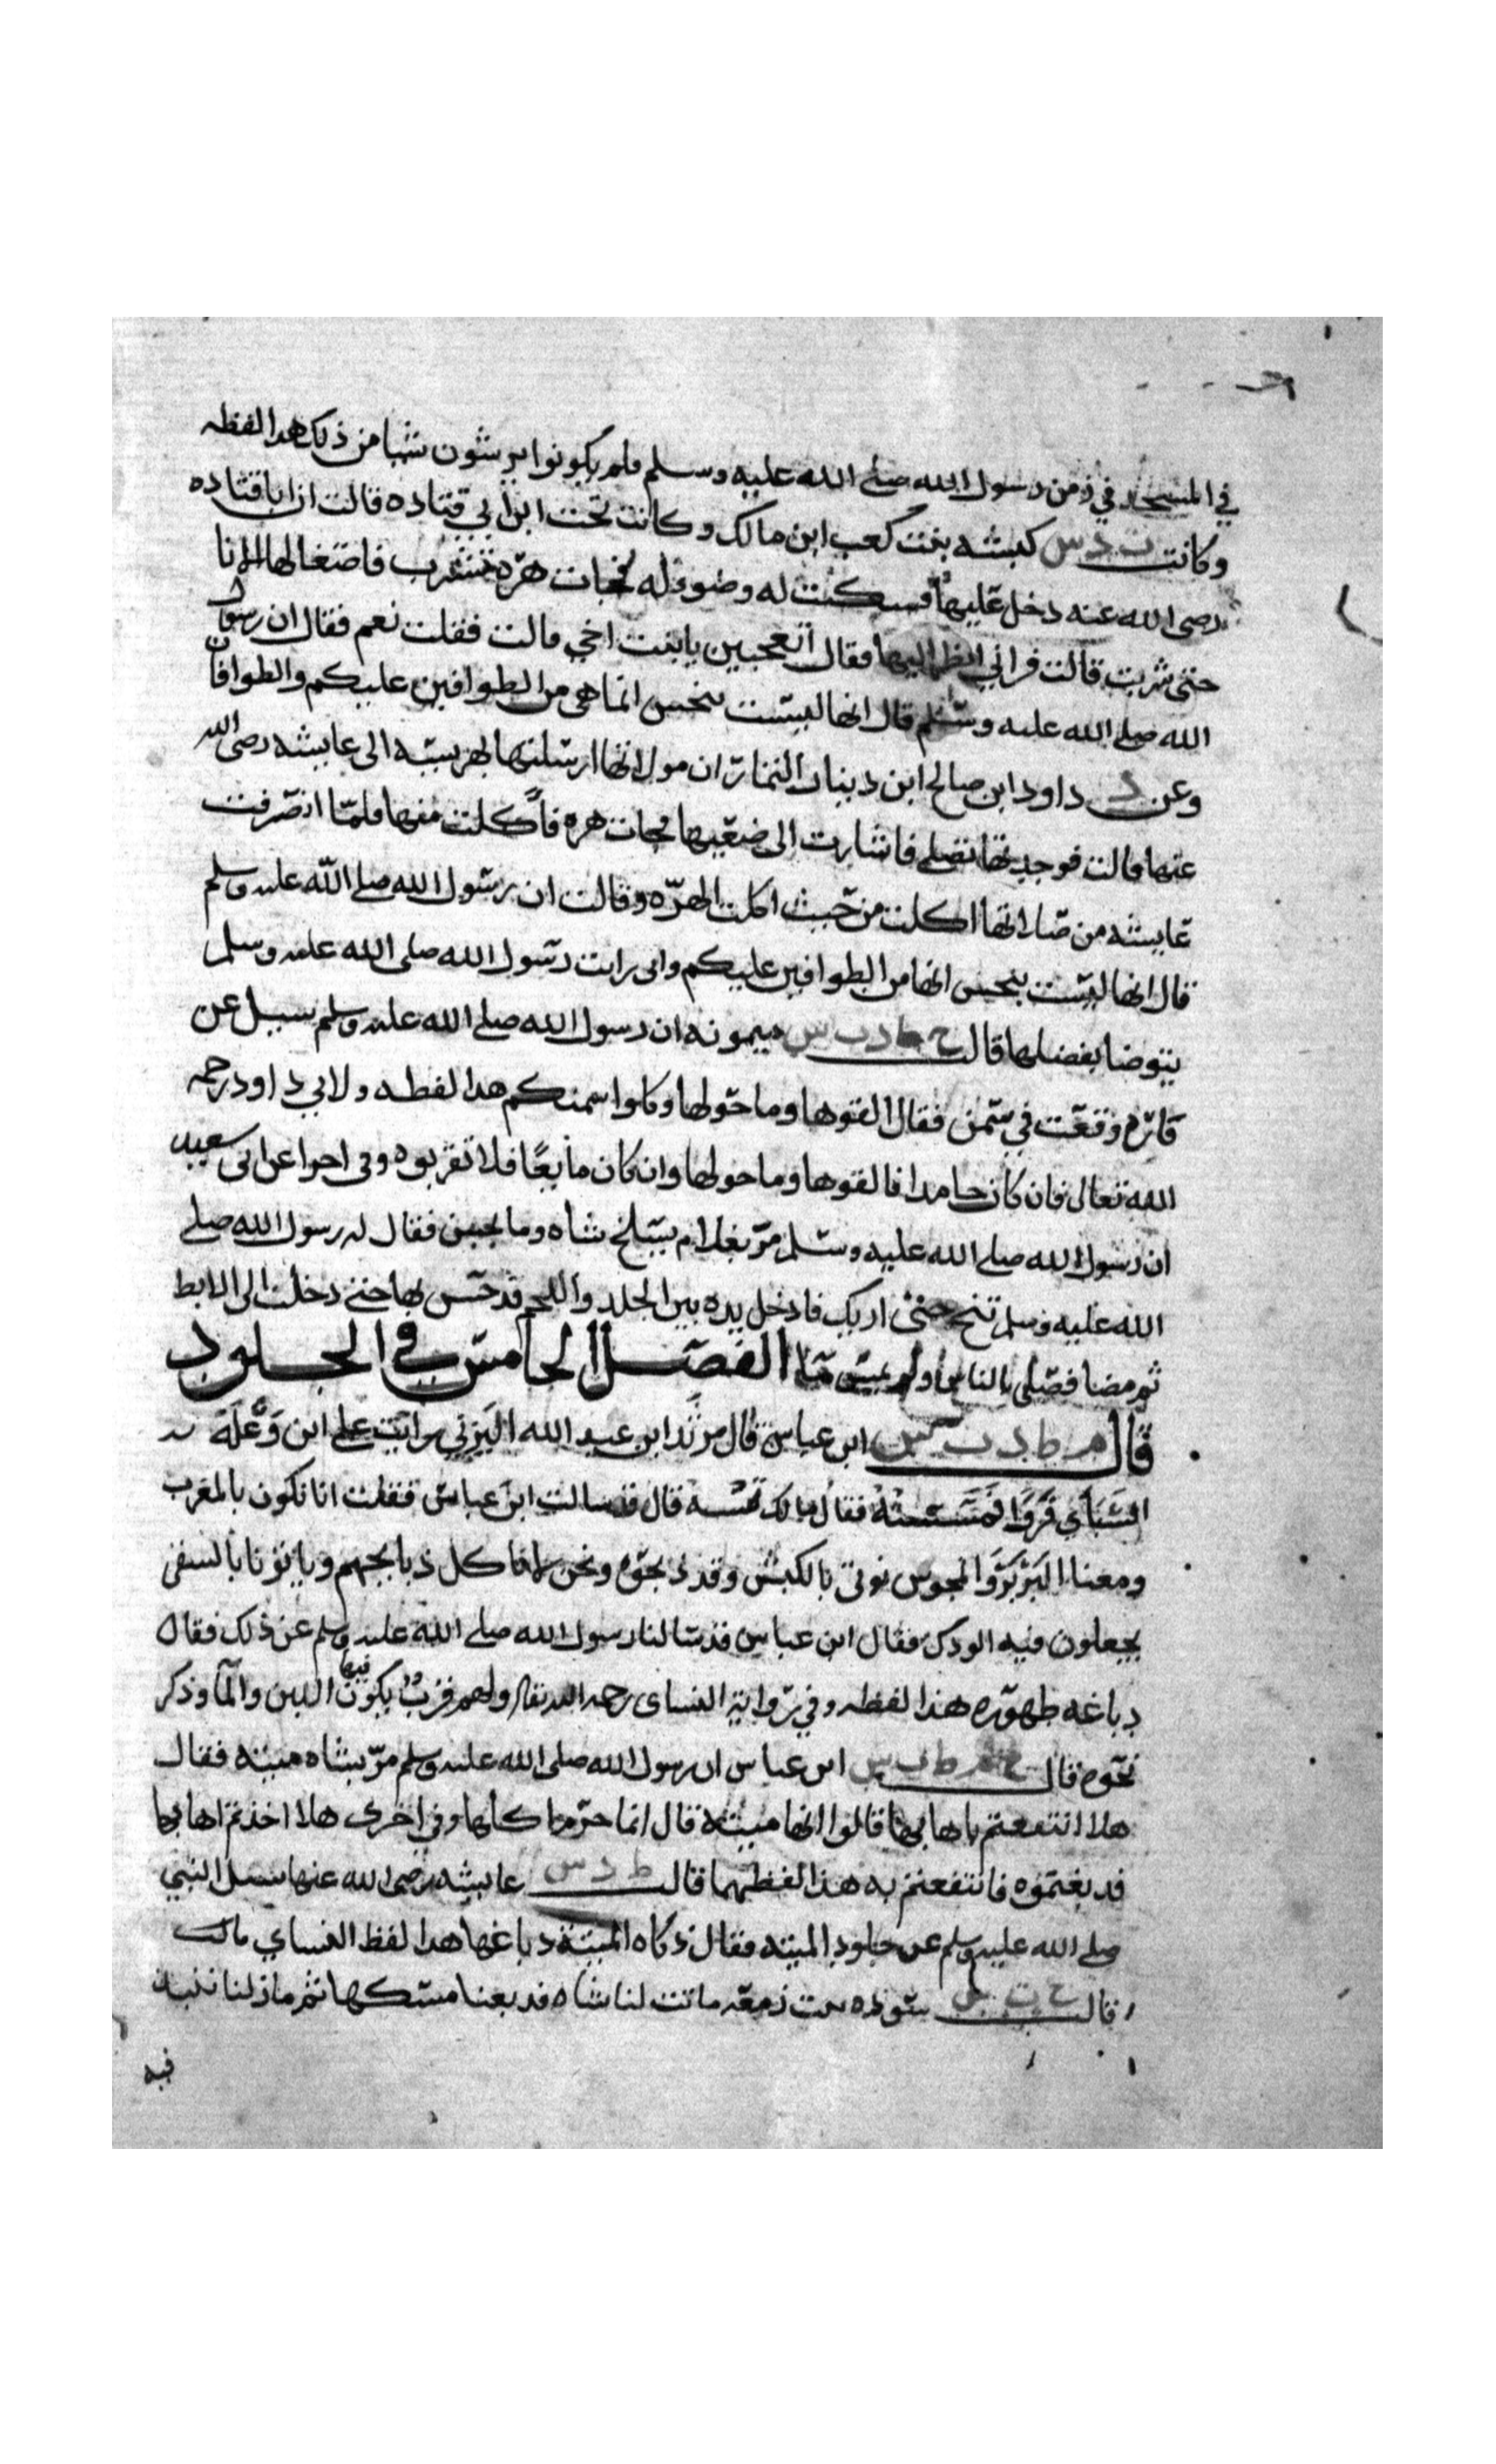 في المسجد في زمن رسول الله صلى الله عليه وسلم فلم يكونوا يرشون شيا من ذلك هدا لفظه
وكانت ت د س كبشه بنت كعب ابن مالك وكانت تحت ابن ابي قتاده قالت ان ابا قتاده
رضي الله عنه دخل عليها فسكبت له وضوء له فجات هره تشرب فاصغا لها الانا
حتى شربت قالت فراني انظر اليها فقال اتعجبين يا بنت اخي قالت فقلت نعم فقال ان رسول
الله صلى الله عليه وسلم قال انها ليست بنجس انما هي من الطوافين عليكم والطوافات
وعن د داود ابن صالح ابن دينار التمار ان مولاتها ارسلتها بهريسه الى عايشه رضي الله
عنها قالت فوجدتها تصلي فاشارت الى ضعيها فجات هره فاكلت منها فلما انصرفت
عايشه من صلاتها اكلت من حيث اكلت الهره وقالت ان رسول الله صلى الله عليه وسلم
قال انها ليست بنجس انها من الطوافين عليكم واني رايت رسول الله صلى الله عليه وسلم
يتوضا بفضلها قالت خ ط د ت س ميمونه ان رسول الله صلى الله عليه وسلم سيل عن
فاره وقعت في سمن فقال القوها وما حولها وكلوا سمنكم هدا لفظه ولابي داود رحمه
الله تعالى فان كان جامدا فالقوها وما حولها وان كان مايعا فلا تقربوه وفي اخرا عن ابي سعيد
ان رسول الله صلى الله عليه وسلم مر بغلام يسلخ شاه وما يحسن فقال له رسول الله صلى
الله عليه وسلم تنح حتى اريك فادخل يده بين الجلد واللحم فدحس بها حتى دخلت الى الابط
ثم مضا فصلى بالناس ولم يمس ما الفصل الخامس في الجلود
قال م ط د ت س ابن عباس قال مرثد ابن عبد الله اليزني رايت على ابن وعلة
السباي فروا فمسسته فقال مالك تمسه قال قد سالت ابن عباس فقلت انا نكون بالمغرب
ومعنا البربر والمجوس نوتى بالكبش وقد ذبحوه ونحن لا ناكل ذبايحهم وياتونا بالسقي
يجعلون فيه الودك فقال ابن عباس قد سالنا رسول الله صلى الله عليه وسلم عن ذلك فقال
دباغه طهوره هذا لفظه وفي رواية النساي رحمه الله تعالى ولهم قرب يكون فيها اللبن والما وذكر
نحوه قال خ م ط د ت س ابن عباس ان رسول الله صلى الله عليه وسلم مر بشاه ميته فقال
هلا انتفعتم باهابها قالوا انها ميتة قال انما حرم اكلها وفي اخرى هلا اخذتم اهابها
فدبغتموه فانتفعتم به هذا لفظهما قالت ط د س عايشه رضي الله عنها سيل النبي
صلى الله عليه وسلم عن جلود الميته فقال ذكاه الميتة دباغها هدا لفظ النساي
قالت خ س سوده بنت زمعه ماتت لنا شاه فدبغنا مسكها ثم مازلنا ننبذ
فيه